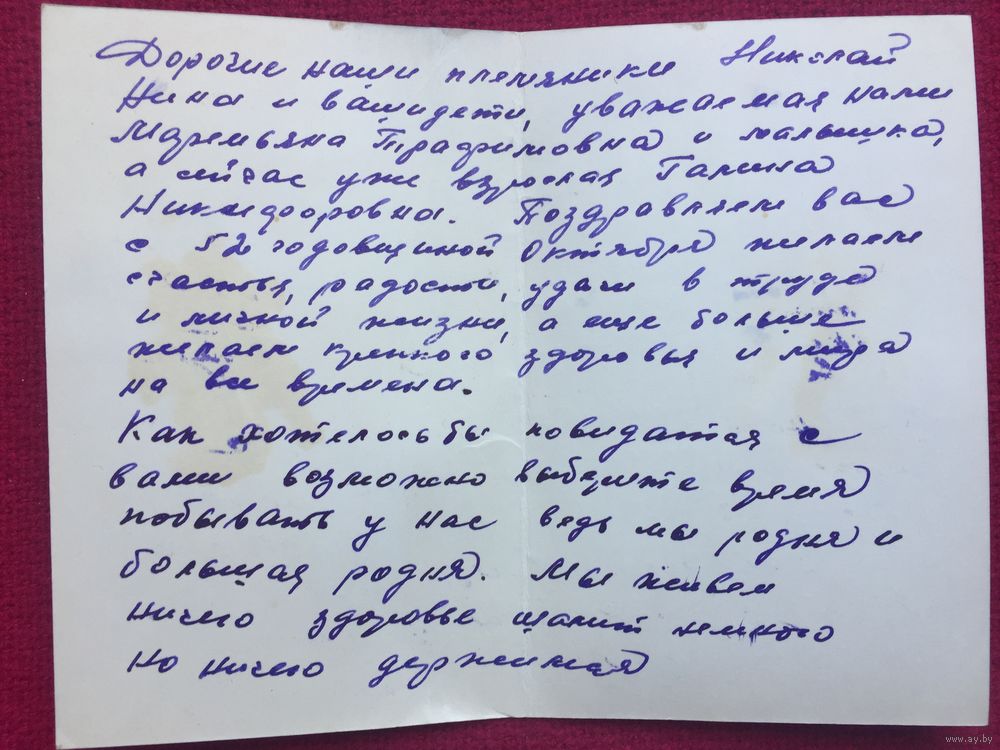 Дорогие наши племяники Николай
Нина и ваши дети, уважаемая нами
Маремьяна Трафимовна и малышка,
а сейчас уже взрослая Галина
Никифоровна. Поздравляем вас
с 52 годовщиной Октября желаем
счастья, радости, удачи в труде
и личной жизни, а еще больше
желаем крепкого здоровья и мира
на все времена.
Как хотелось бы повидатся с
вами возможно выберите время
побывать у нас ведь мы родня и
большая родня. Мы живем
ничего здоровье шалит немного
но ничего держимся
www.ay.by